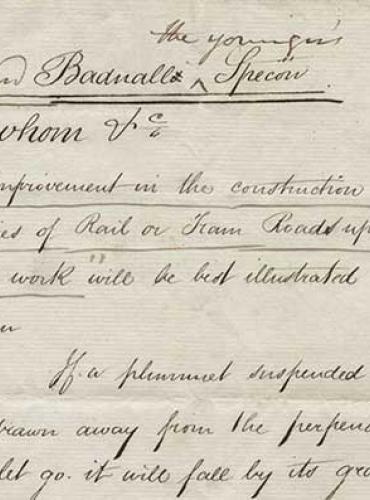 the younger's
Badnall Specōn.
whom & c
improvement in the construction
ies of Rail or Tram Roads up
work" will be best illustrated
If a plummet suspended
drawn away from the perpend
let go. it will fall by its gra